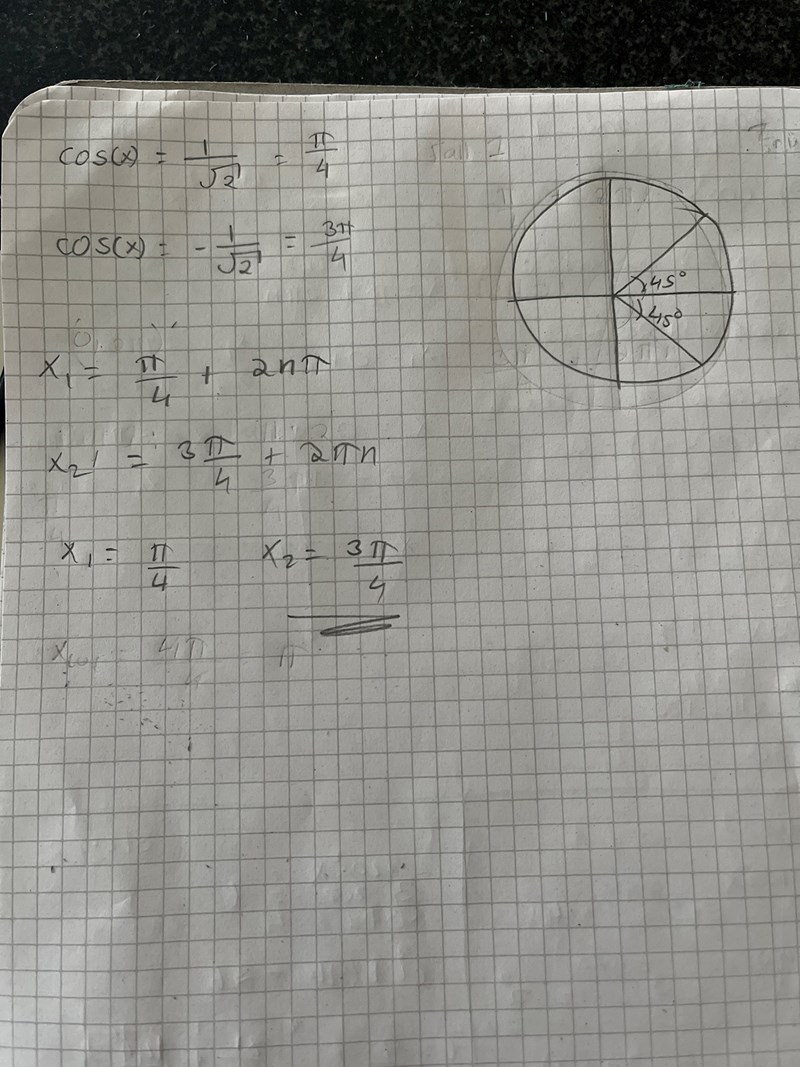 cos(x) = 1/√2 = π/4
cos(x) = -1/√2 = 3π/4
45°
45°
x₁ = π/4 + 2nπ
x₂ = 3π/4 + 2πn
x₁ = π/4 x₂ = 3π/4